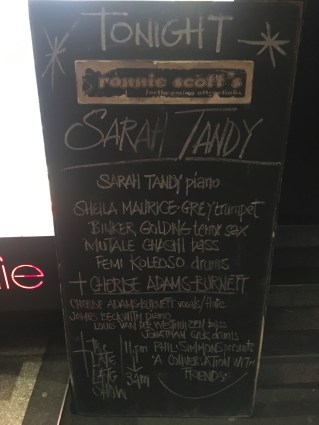 TONIGHT
ronnie scott's
forthcoming attractions
SARAH TANDY
SARAH TANDY piano
SHEILA MAURICE-GREY trumpet
BINKER GOLDING tenor sax
MUTALE CHASHI bass
FEMI KOLEOSO drums
+ CHERISE ADAMS-BURNETT
CHERISE ADAMS-BURNETT vocals/flute
JAMES BECKWITH piano
LOUIS VAN DER WESTHUIZEN bass
JONATHAN drums
+ THE LATE LATE SHOW
11pm
3am
PHIL SIMMONS presents
"A CONVERSATION WITH
FRIENDS"
fie